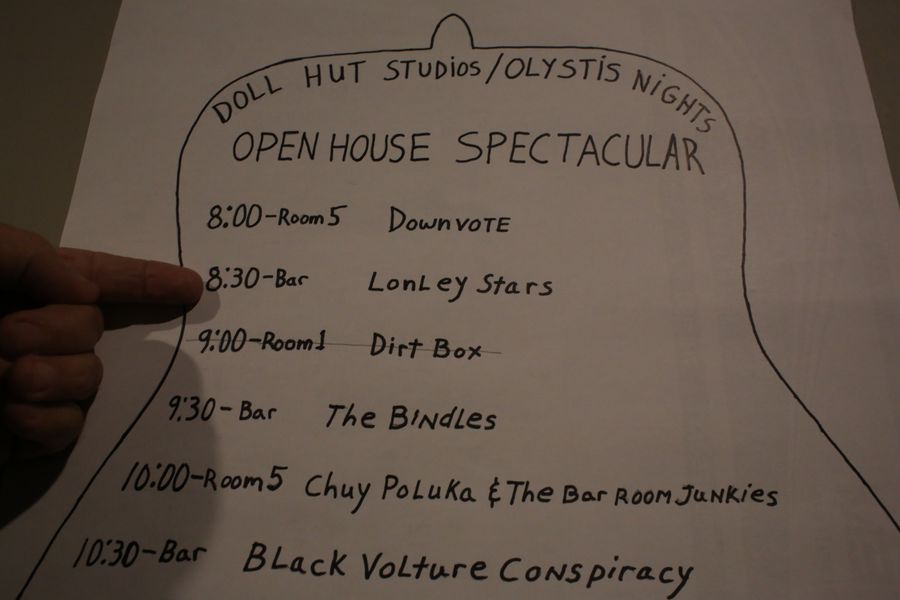 DOLL HUT STUDiOS/OLYSTiS NiGHTS
OPEN HOUSE SPECTACULAR
8:00-Room 5 DownvoTE
8:30-Bar LonLey Stars
9:00-Room 1 Dirt Box
9:30-Bar The BINdles
10:00-Room 5 Chuy PoLuKa & The Bar Room JunKies
10:30-Bar BLack VoLture Conspiracy